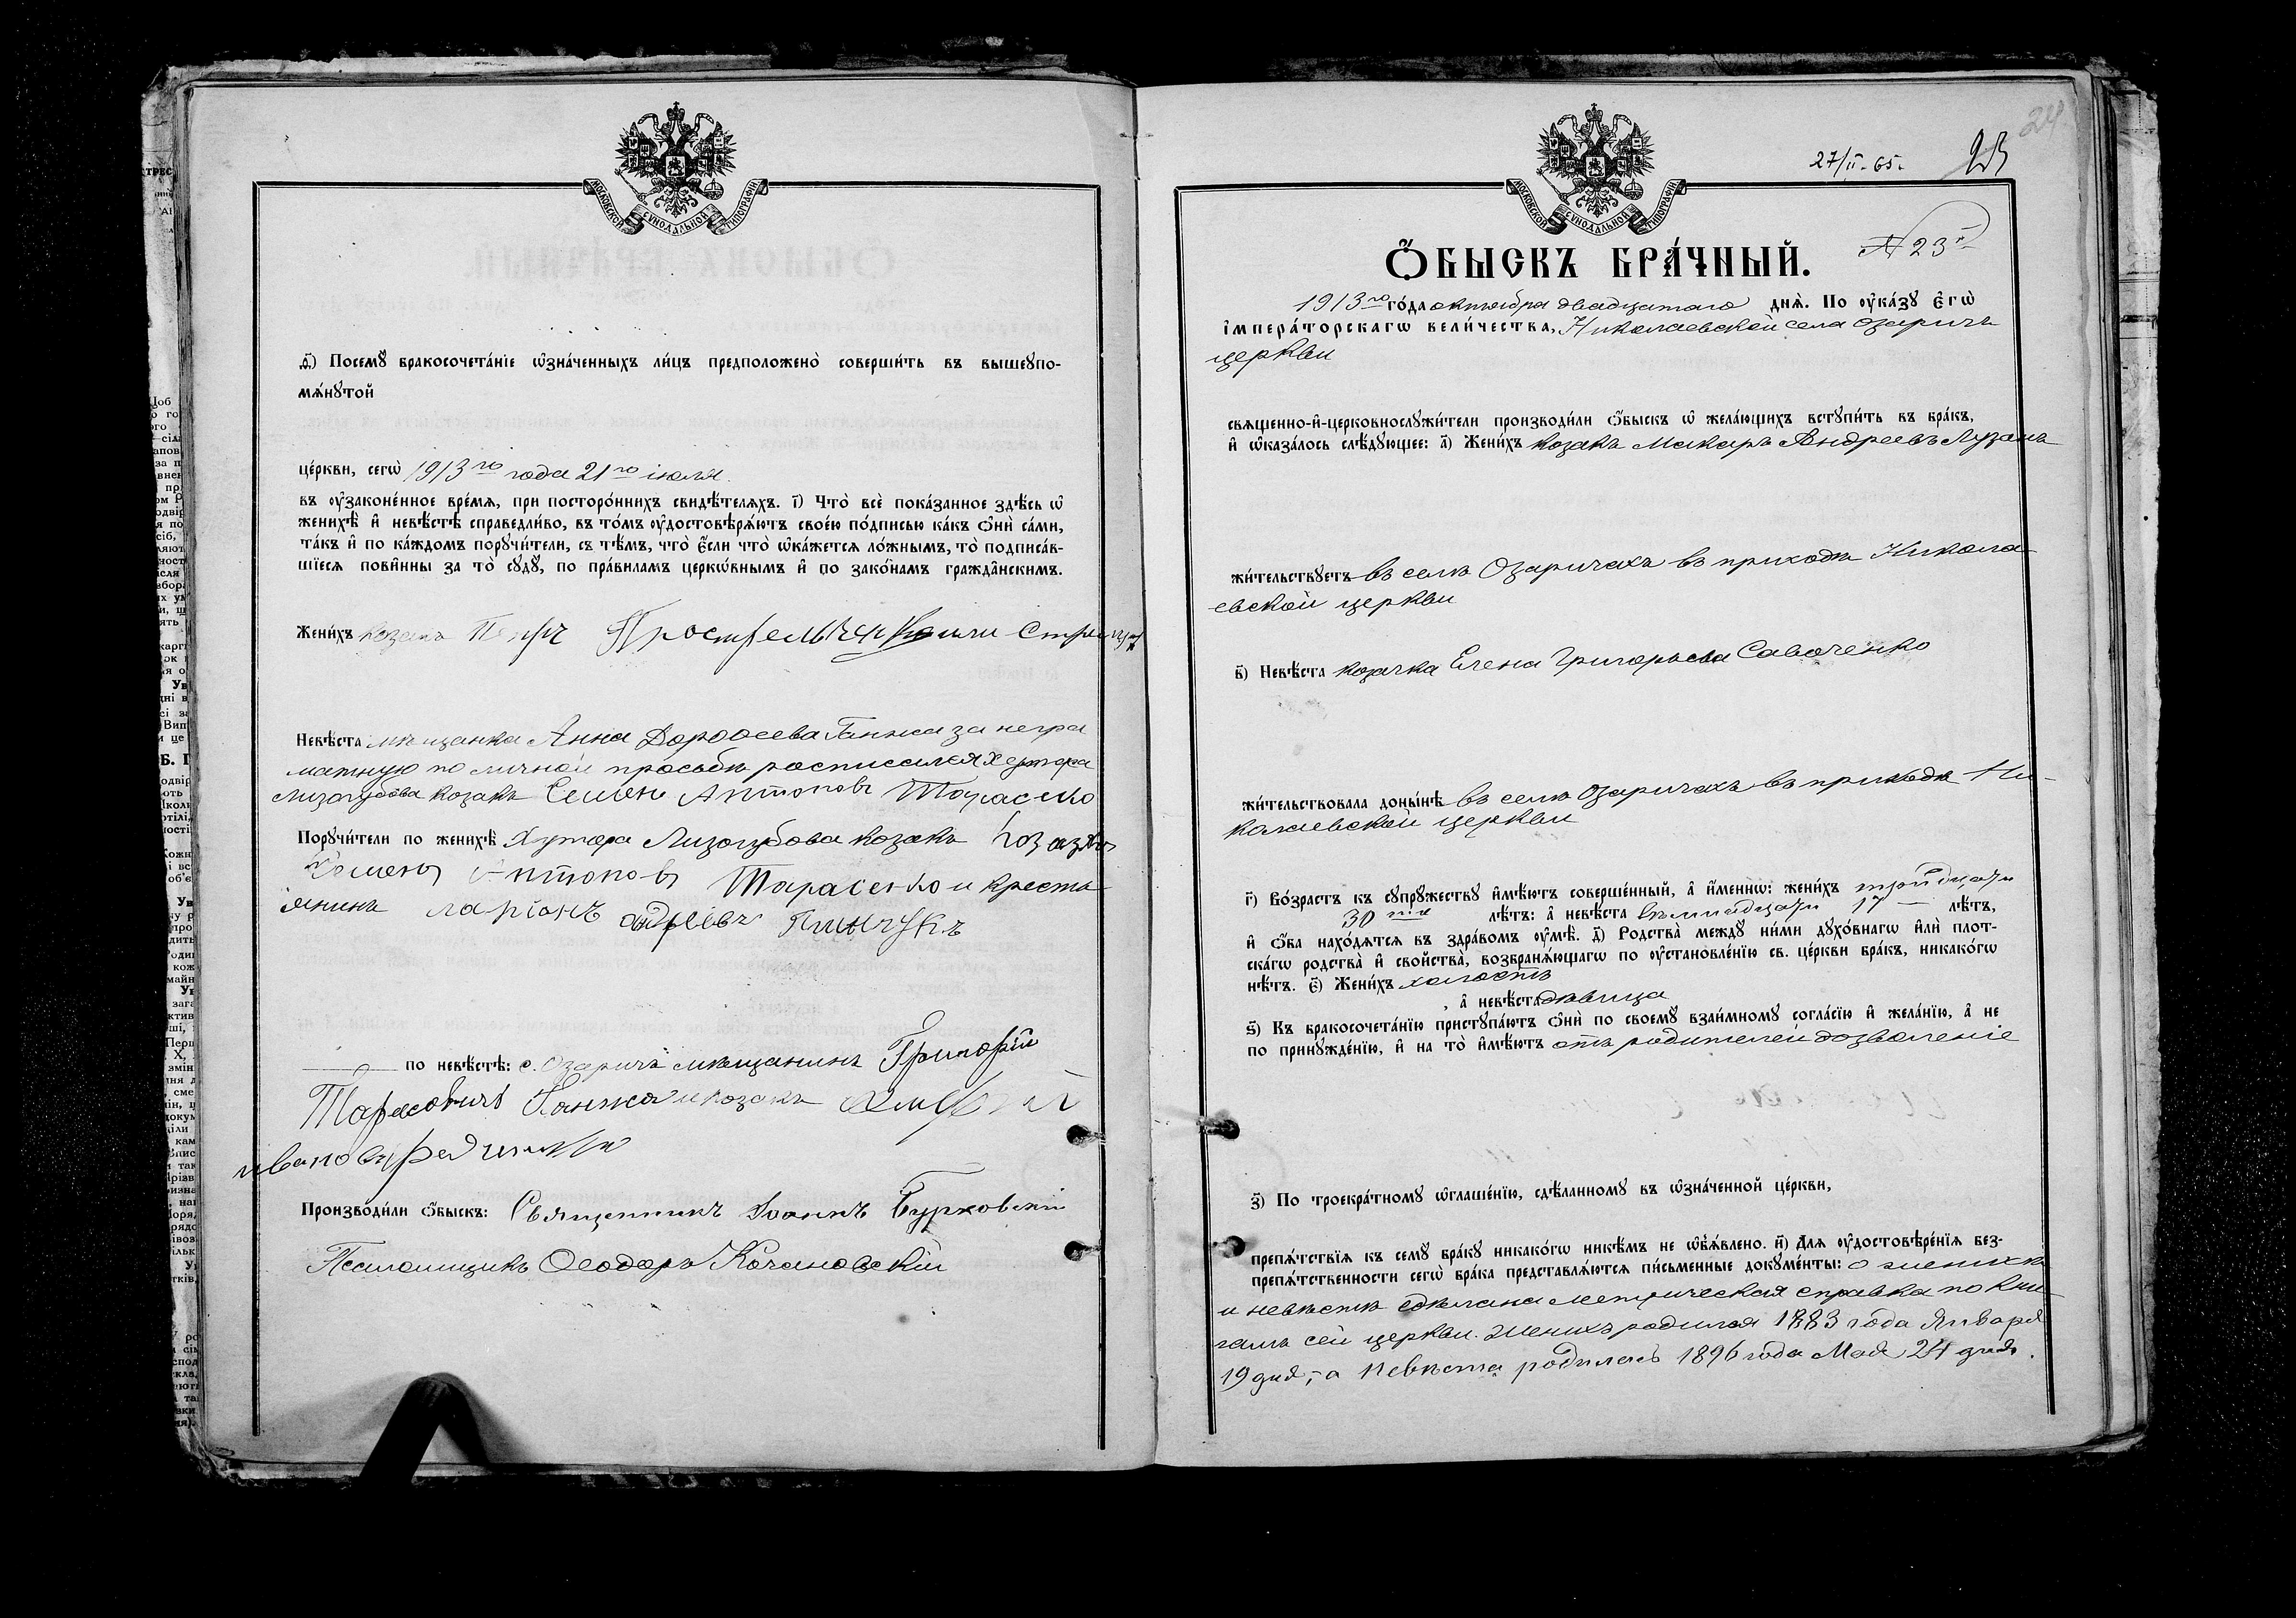 МОСКОВСКОЙ СѴНОДАЛЬНОЙ ТИПОГРАФІИ
д҃) Посемꙋ̀ бракосочета́нїе ѡ҆зна́ченныхъ ли́цъ предположено̀ соверши́ть въ вышеꙋпо-
мѧ́нꙋтой
це́ркви, сегѡ̀ 1913го года 21го іюля.
въ ѹ҆законе́нное вре́мѧ, при посторо́ннихъ свидѣ́телѧхъ. і҃) Что̀ всѐ пока́занное здѣ́сь ѡ҆
женихѣ̀ и҆ невѣ́стѣ справедли́во, въ то́мъ ѹ҆достовѣрѧ́ютъ свое́ю по́дписью ка́къ ѻ҆нѝ са́ми,
та́къ и҆ по ка́ждомъ порꙋчи́тели, съ тѣ́мъ, что̀ є҆́сли что̀ ѡ҆ка́жетсѧ ло́жнымъ, то̀ подписа́в-
шїесѧ пови́нны за то̀ сꙋдꙋ̀, по пра́виламъ церкѡ́внымъ и҆ по зако́намъ гражда́нскимъ.
Жени́хъ козакъ Петръ
Невѣ́ста мѣщанка Анна Дороѳеева Ганжа за негра
матную по личной просьбѣ росписался хутора
Лизогубова козакъ Семенъ Антоновъ Тарасенко
Порꙋчи́тели по женихѣ̀ Хутора Лизогубова козакъ козакъ
Семенъ Антоновъ Тарасенко и кресть-
янинъ Ларіонъ андреевъ Пинчукъ
по невѣ́стѣ: с. Озаричъ мѣщанинъ Григорій
Тарасовичъ Ганжа и козакъ
ивановъ
Производи́ли ѻ҆́быскъ: Священникъ Іоаннъ Бурховскій
Псаломщикъ Ѳеодоръ Качановскій
24
27/II-65. 23
МОСКОВСКОЙ СѴНОДАЛЬНОЙ ТИПОГРАФІИ
Ѻ҆́БЫСКЪ БРА́ЧНЫЙ. N 23й
1913го го́да октября двадцатаго днѧ̀. По ѹ҆ка́зꙋ Є҆гѡ̀
і҆мпера́торскагѡ вели́чества, Николаевской села Озаричъ
церкви
свѧще́нно-и҆-церковнослꙋжи́тели производи́ли ѻ҆́быскъ ѡ҆ жела́ющихъ встꙋпи́ть въ бра́къ,
и҆ ѡ҆каза́лось слѣ́дꙋющее: а҃) Жени́хъ козакъ Макаръ Андреевъ Лузанъ
жи́тельствꙋетъ въ селѣ Озаричахъ въ приходѣ Никола-
евской церкви
в҃) Невѣ́ста козачка Елена Григорьева Савоченко
жи́тельствовала доны́нѣ въ селѣ Озаричахъ въ приходѣ Ни-
колаевской церкви
г҃) Во́зрастъ къ сꙋпрꙋ́жествꙋ и҆мѣ́ютъ соверше́нный, а҆ и҆́меннѡ: жени́хъ тридцати
30ти лѣ́тъ: а҆ невѣ́ста семнадцати 17 — лѣ́тъ,
и҆ ѻ҆́ба нахо́дѧтсѧ въ здра́вомъ ѹ҆мѣ̀. д҃) Родства̀ междꙋ̀ ни́ми дꙋхо́внагѡ и҆лѝ плот-
ска́гѡ родства̀ и҆ свойства̀, возбранѧ́ющагѡ по ѹ҆становле́нїю св. це́ркви бра́къ, никако́гѡ
нѣ́тъ. є҃) Жени́хъ холостъ
, а҆ невѣ́ста дѣвица
ѕ҃) Къ бракосочета́нїю пристꙋпа́ютъ ѻ҆нѝ по своемꙋ̀ взаи́мномꙋ согла́сїю и҆ жела́нїю, а҆ не
по принꙋжде́нїю, и҆ на то̀ и҆мѣ́ютъ отъ родителей дозволеніе
з҃) По троекра́тномꙋ ѡ҆глаше́нїю, сдѣ́ланномꙋ въ ѡ҆зна́ченной це́ркви,
препѧ́тствїѧ къ семꙋ̀ бра́кꙋ никако́гѡ никѣ́мъ не ѡ҆б̾ѧ́влено. и҃) Длѧ ѹ҆достовѣре́нїѧ без-
препѧ́тственности сегѡ̀ бра́ка представлѧ́ютсѧ пи́сьменные докꙋме́нты: о женихѣ
и невѣстѣ сдѣлана метрическая справка по кни-
гамъ сей церкви. Женихъ родился 1883 года Января
19 дня, а невѣста родилась 1896 года Мая 24 дня.